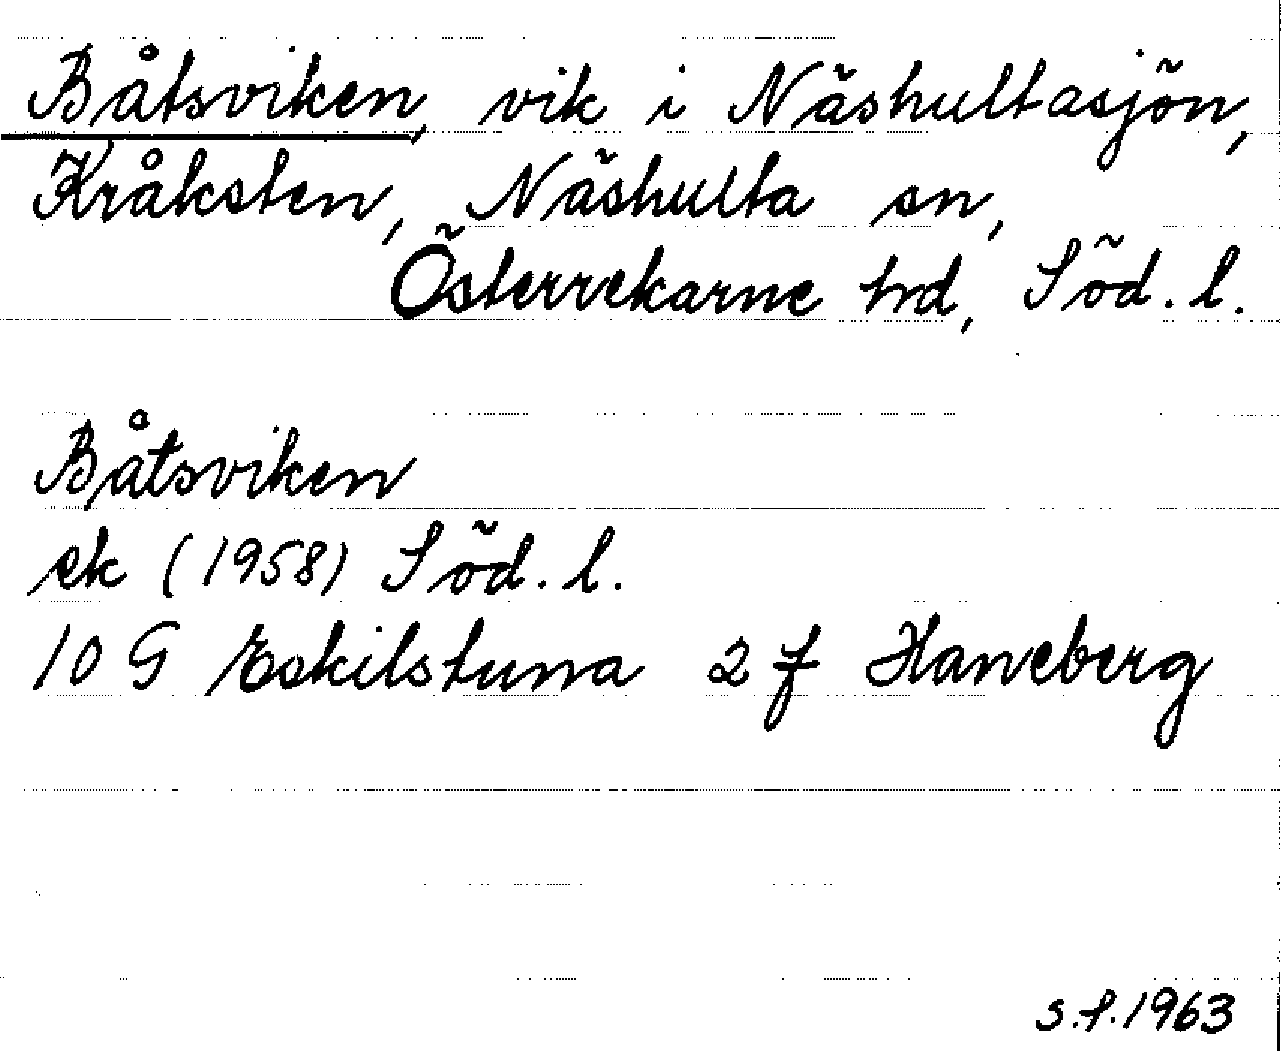 Båtsviken, vik i Näshultasjön,
Kråksten, Näshulta sn,
Österrekarne hd, Söd. l.
Båtsviken
ek (1958) Söd. l.
10 G Eskilstuna 2 f Haneberg
s.f. 1963